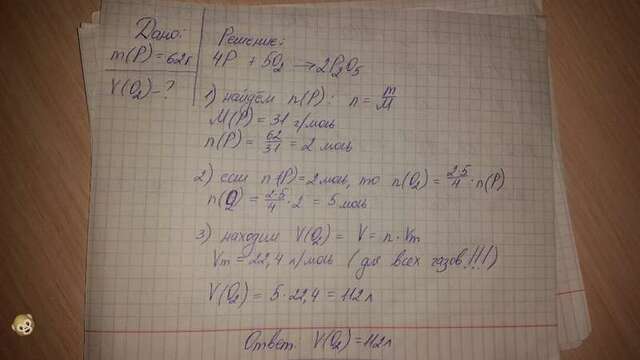 Дано:
m(P) = 62г
V(O₂) - ?
Решение:
4P + 5O₂ → 2P₂O₅
1) найдём n(P): n = m/M
M(P) = 31 г/моль
n(P) = 62/31 = 2 моль
2) если n(P) = 2 моль, то n(O₂) = 2·5/4 · n(P)
n(O₂) = 2·5/4 · 2 = 5 моль
3) находим V(O₂) = V = n · Vm
Vm = 22,4 л/моль (для всех газов!!!)
V(O₂) = 5 · 22,4 = 112 л
Ответ: V(O₂) = 112л